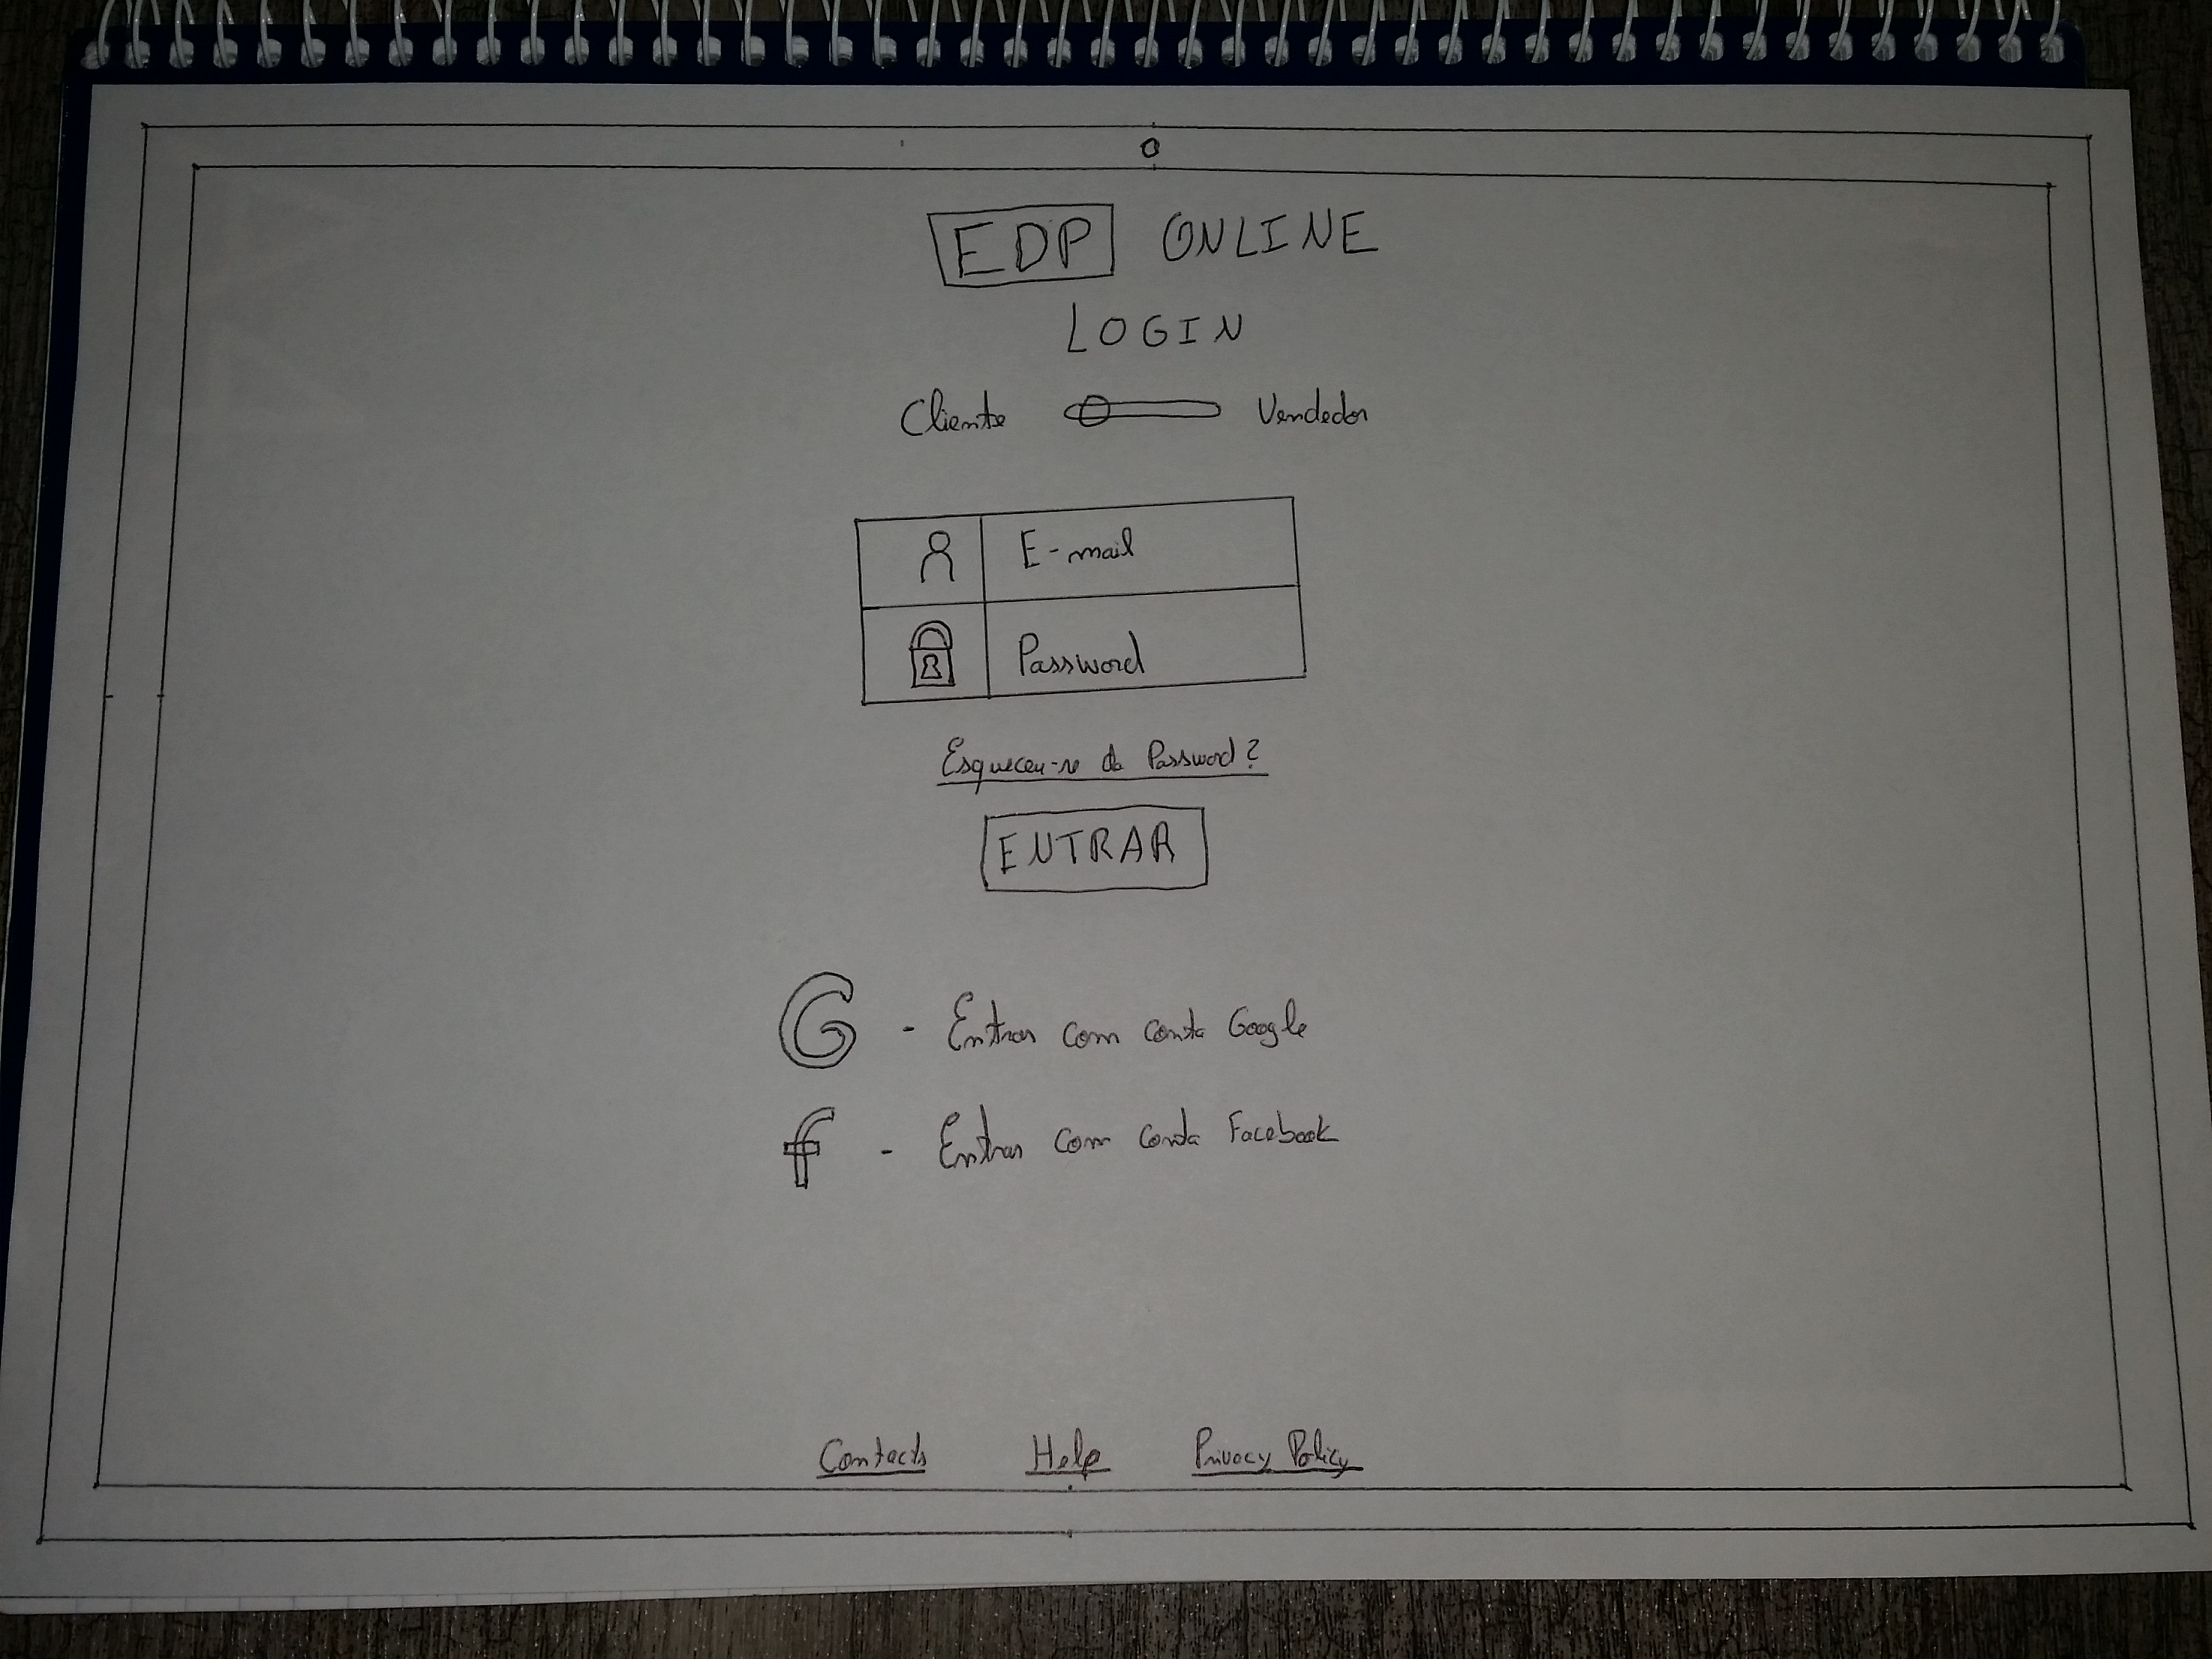 EDP ONLINE
LOGIN
Cliente Vendedor
E-mail
Password
Esqueceu-se da Password?
ENTRAR
G - Entrar com conta Google
f - Entrar com conta Facebook
Contacts Help Privacy Policy